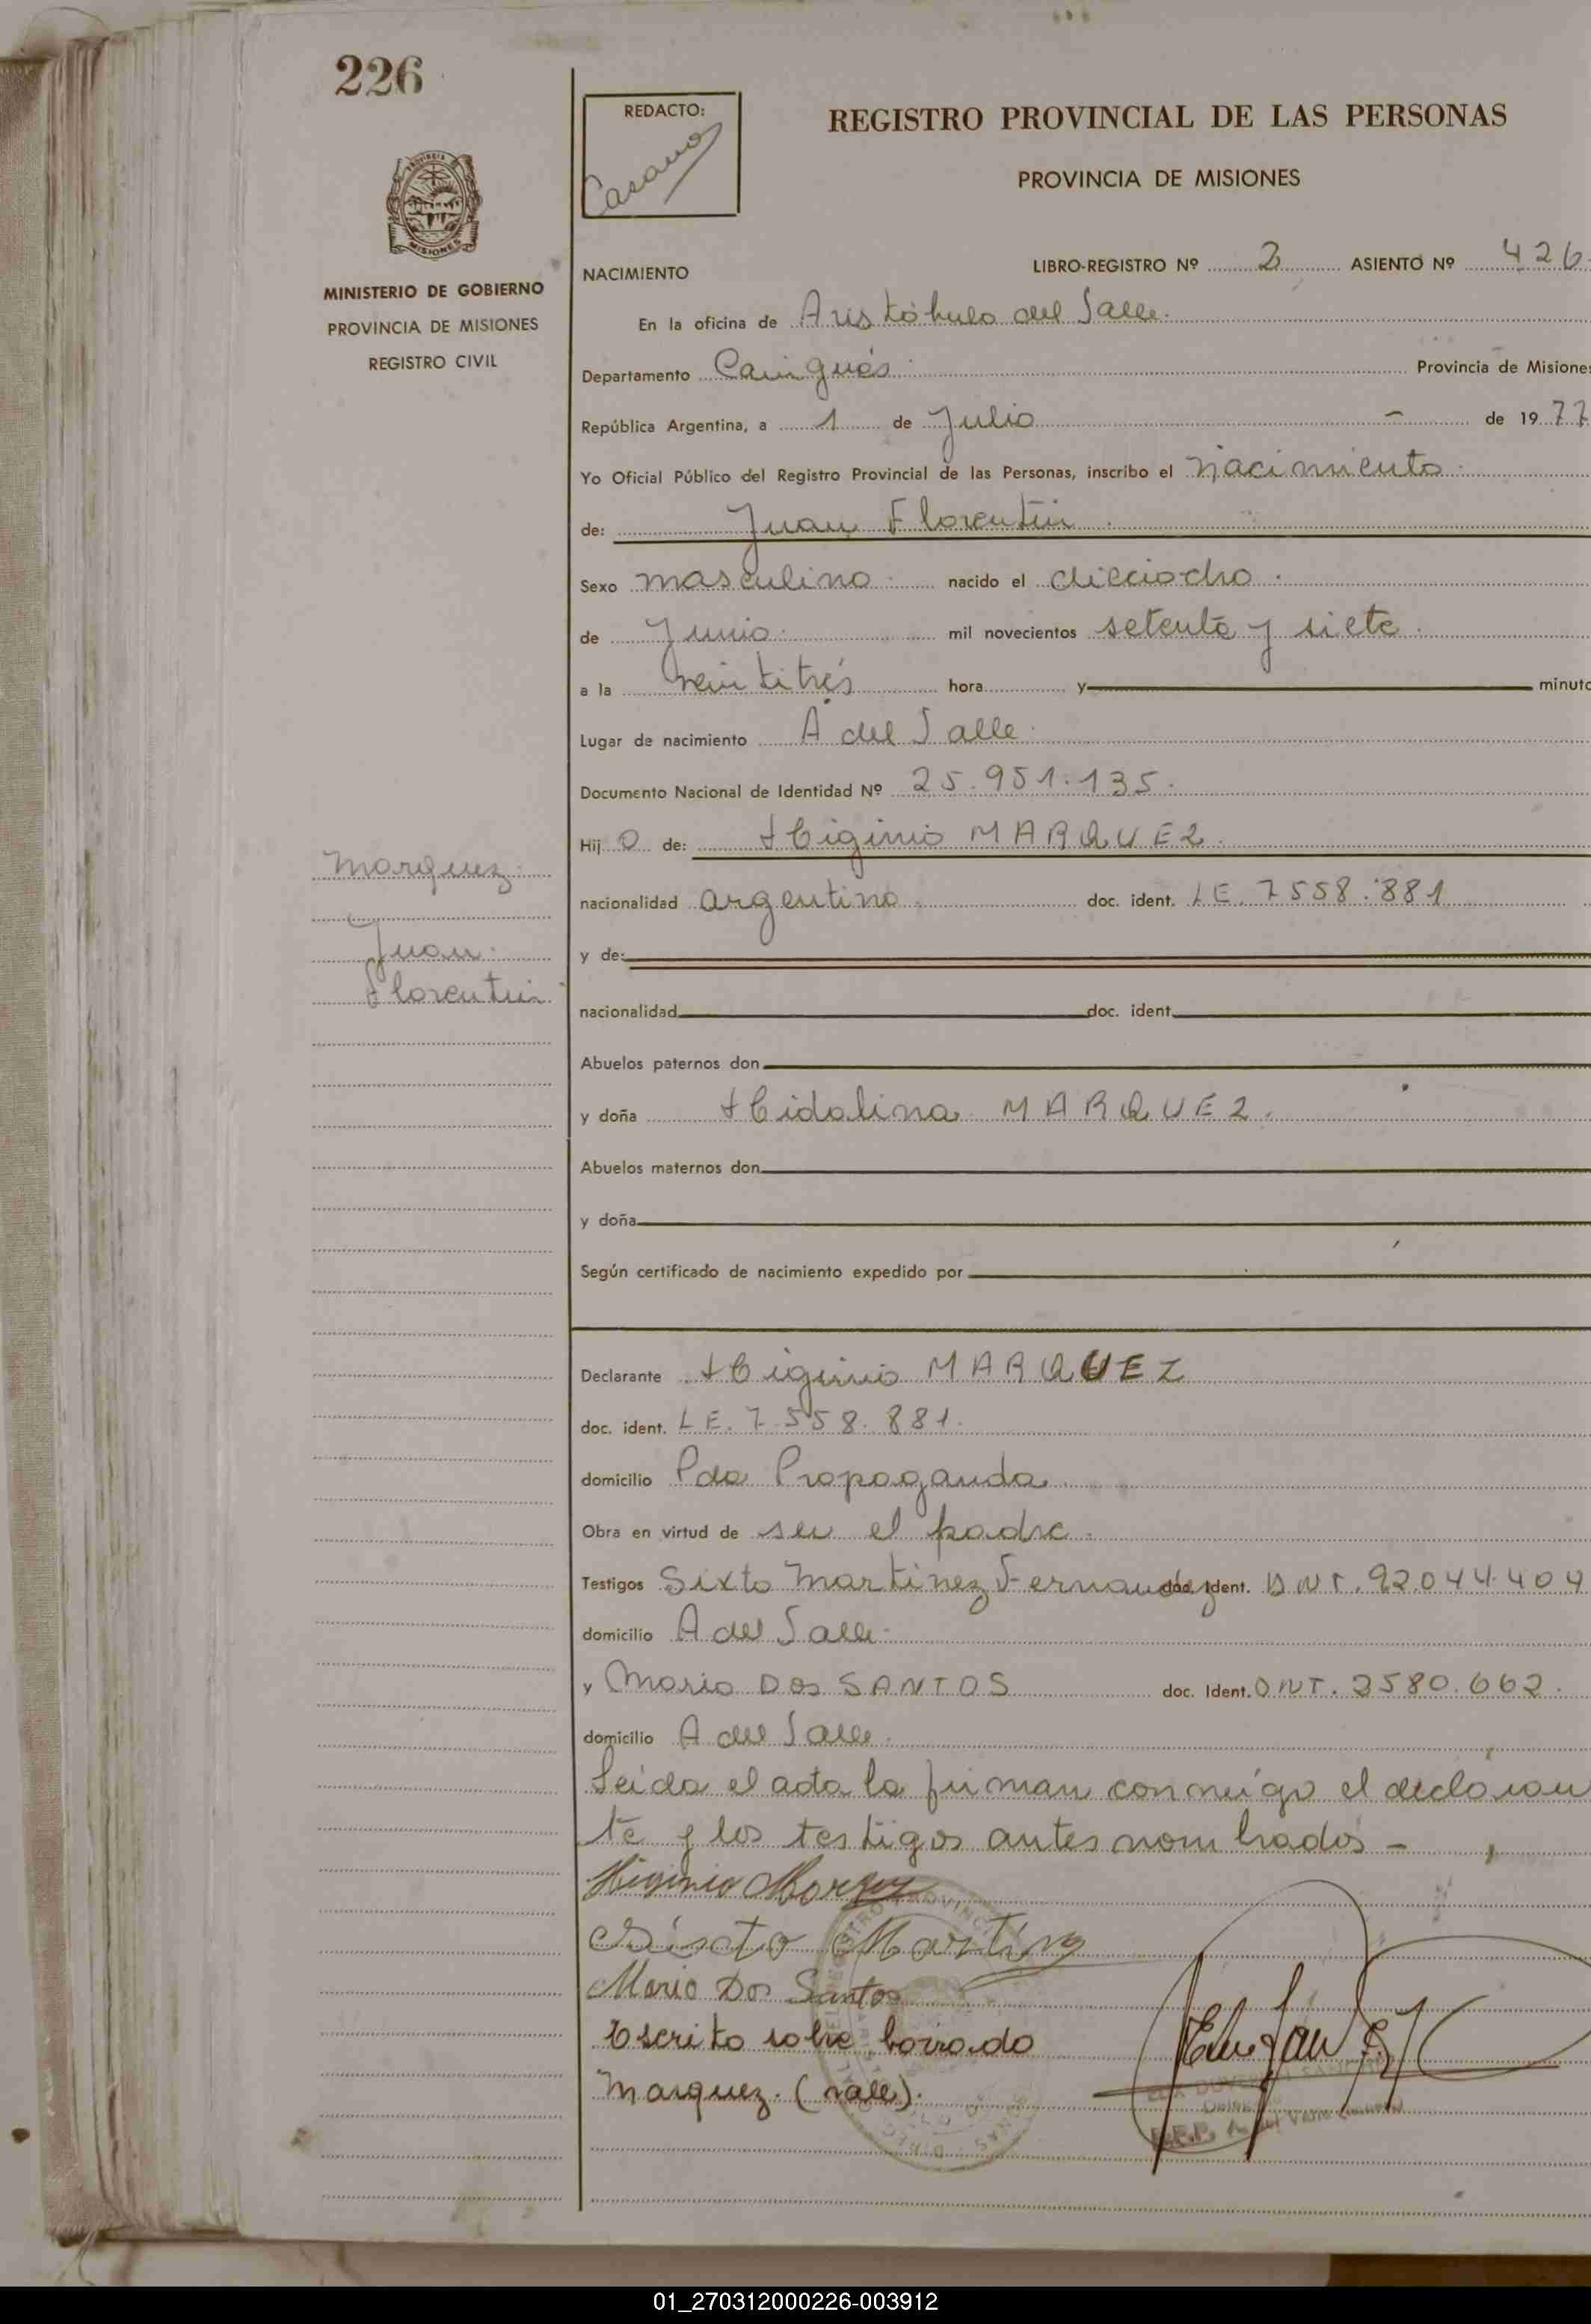 226
REDACTO:
Casano
REGISTRO PROVINCIAL DE LAS PERSONAS
PROVINCIA DE MISIONES
MISIONES
MINISTERIO DE GOBIERNO
PROVINCIA DE MISIONES
REGISTRO CIVIL
NACIMIENTO
LIBRO-REGISTRO Nº 2 ASIENTO Nº 426
En la oficina de Aristóbulo del Valle.
Departamento Cainguás Provincia de Misiones
República Argentina, a 1 de Julio - de 1977
Yo Oficial Público del Registro Provincial de las Personas, inscribo el nacimiento
de: Juan Florentin
Sexo masculino nacido el dieciocho
de Junio mil novecientos setenta y siete
a la veintitrés hora y minuto
Lugar de nacimiento A del Valle
Documento Nacional de Identidad Nº 25.951.135.
Hij o de: Higinio MARQUEZ.
nacionalidad argentino doc. ident. LE. 7558.881
y de:
nacionalidad doc. ident.
Abuelos paternos don
y doña Hidalina MARQUEZ.
Abuelos maternos don
y doña
Según certificado de nacimiento expedido por
Marquez
Juan
Florentin
Declarante Higinio MARQUEZ
doc. ident. LE. 7.558.881.
domicilio Pda Propaganda
Obra en virtud de ser el padre.
Testigos Sixto Martinez Fernandez doc. Ident. DNI. 92.044.404
domicilio A del Valle
y Mario DOS SANTOS doc. Ident. DNI. 2580.662.
domicilio A del Valle.
Leida el acta la firman conmigo el declaran
te y los testigos antes nombrados -
Higinio Marquez
Sixto Martinez
Mario Dos Santos
Escrito sobre borrado
Marquez. (vale).
01_270312000226-003912